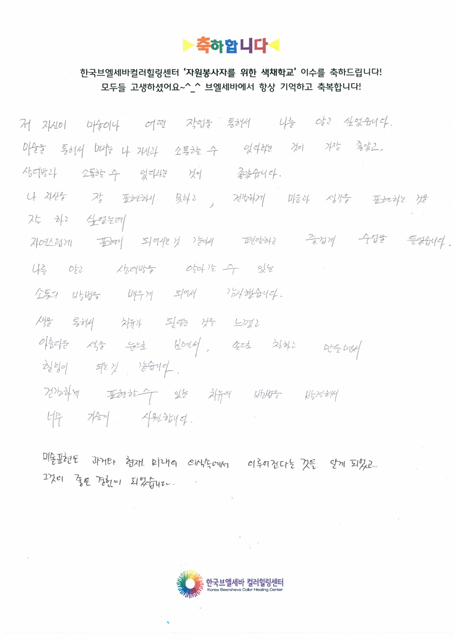 축하합니다
한국브엘세바컬러힐링센터 '자원봉사자를 위한 색채학교' 이수를 축하드립니다!
모두들 고생하셨어요~^_^ 브엘세바에서 항상 기억하고 축복합니다!
저 자신이 마음이나 어떤 작업을 통해서 나를 알고 싶었습니다.
미술을 통해서 나 자신과 소통할 수 있다라는 것이 가장 좋았고,
상대방과 소통할 수 있다라는 것이 좋았습니다.
나 자신을 잘 표현하지 못하고, 제대로 마음과 심정을 표현하는 것을
잘 하고 싶었는데
자연스럽게 표현이 되어지는것 같아서 편안하고 즐겁게 수업을 들었습니다.
나를 알고 상대방을 알아가는 수 있는
소통의 방법을 배우게 되어서 감사했습니다.
색을 통해서 치유가 되어지는 것을 느꼈고
아름다운 색을 눈으로 보면서, 손으로 칠하고 만들면서
힐링이 되는것 같습니다.
건강하게 표현할수 있는 치유의 방법을 발견해서
너무 가슴이 시원합니다.
미술표현도 과거와 현재 미래의 연속속에서 이루어진다는 것을 알게 되었고
그것이 좋은 경험이 되었습니다.
한국브엘세바 컬러힐링센터
Korea Beersheva Color Healing Center